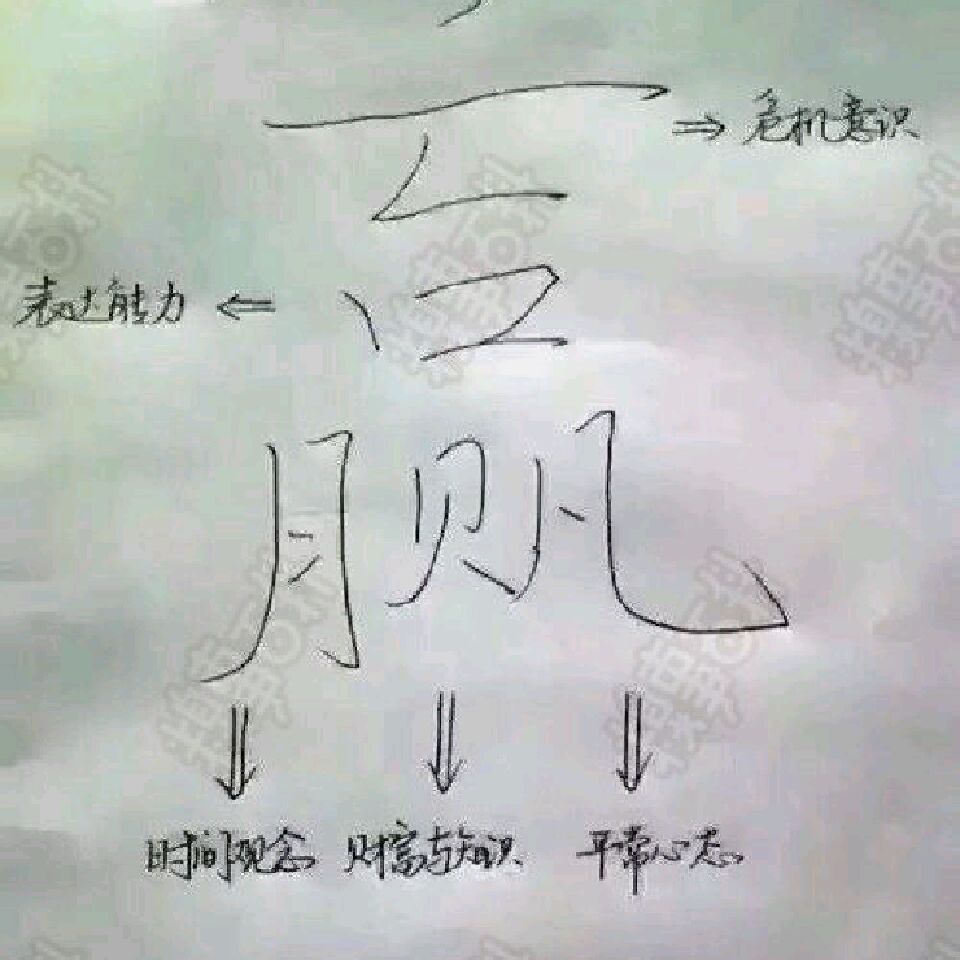 亡 ⇒ 危机意识
表达能力 ⇐ 口
月 贝 凡
⇓ ⇓ ⇓
时间观念 财富与知识 平常心态